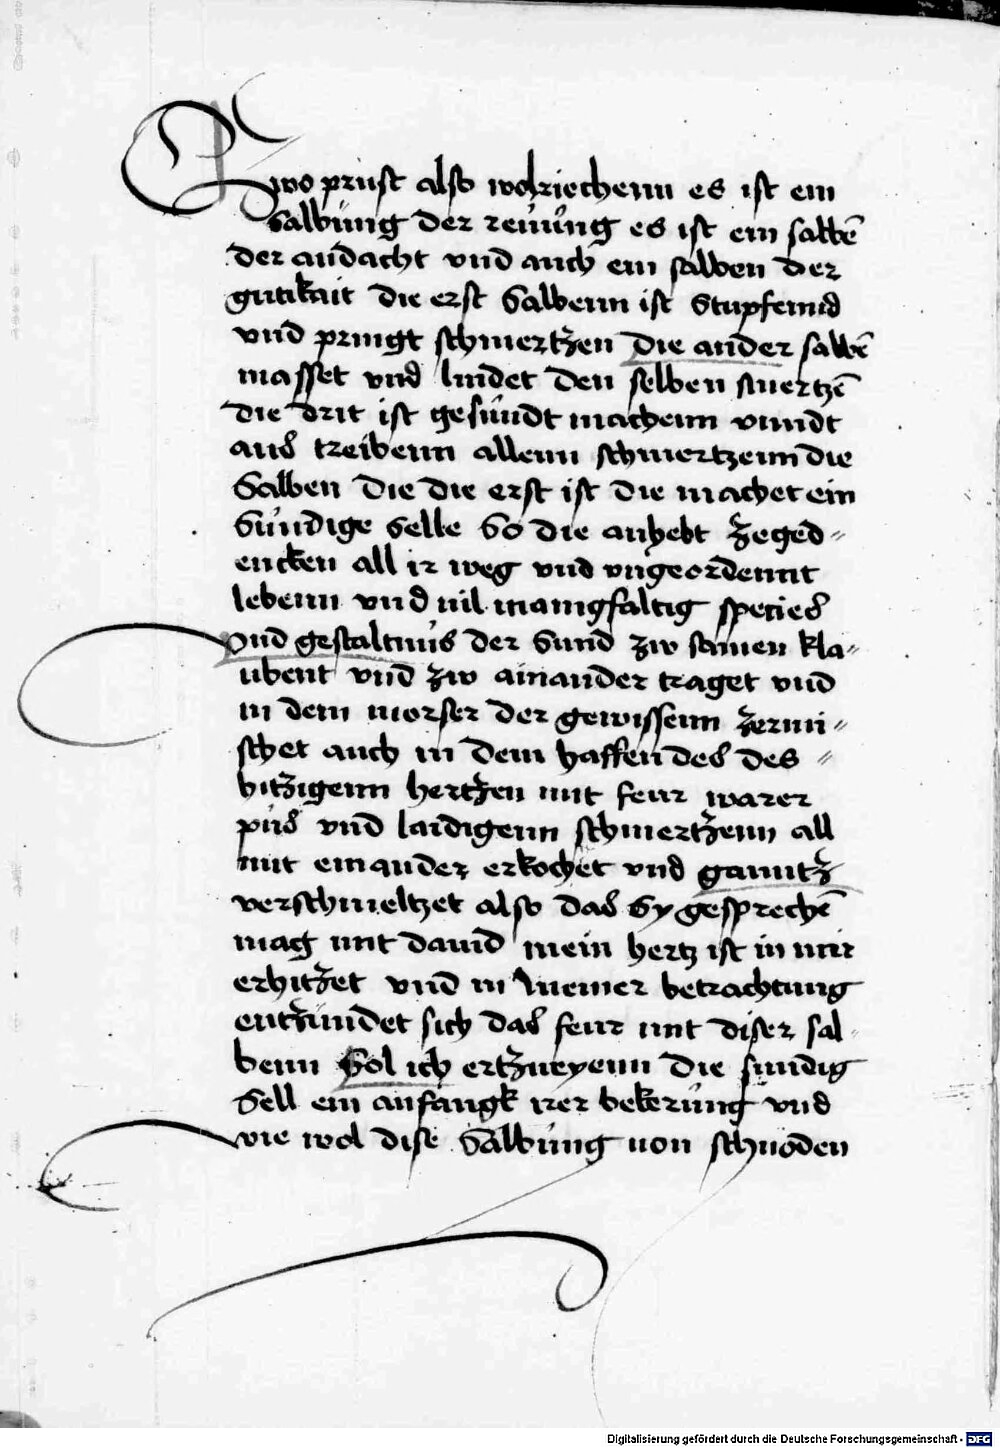 Zwo prüst also wolriechenn es ist ein
Salbung der reüüng es ist ein salbē
der andacht vnd auch ein salben der
gutikait die erst Salbenn ist Stupfennd
vnd pringt schmertzen die ander salbē
masset vnd lindet den selben smertzē
die drit ist gesündt machenn vnndt
aus treibenn allenn schmertzenn die
Salben die die erst ist die machet ein
Sündige Selle So die anhebt zeged-
encken all ir weg vnd vngeordennt
lebenn vnd uil manigfaltig species
vnd gestaltnüs der Sünd zw samen kla-
ubent vnd zw ainander traget vnd
in dem morser der gewissenn zermi-
schet auch in dem haffen des des
hitzigenn hertzen mit feur warer
püs vnd laidigenn schmertzenn all
mit einander erkochet vnd ganntz
verschmeltzet also das Sy gesprechē
mag mit dauid mein hertz ist in mir
erhitzet vnd in meiner betrachtung
entzündet sich das feur mit diser sal-
benn Sol ich ertzneyenn die sündig
Sell ein anfangk irer bekerüng vnd
wie wol dise Salbüng von schnöden
Digitalisierung gefördert durch die Deutsche Forschungsgemeinschaft - DFG